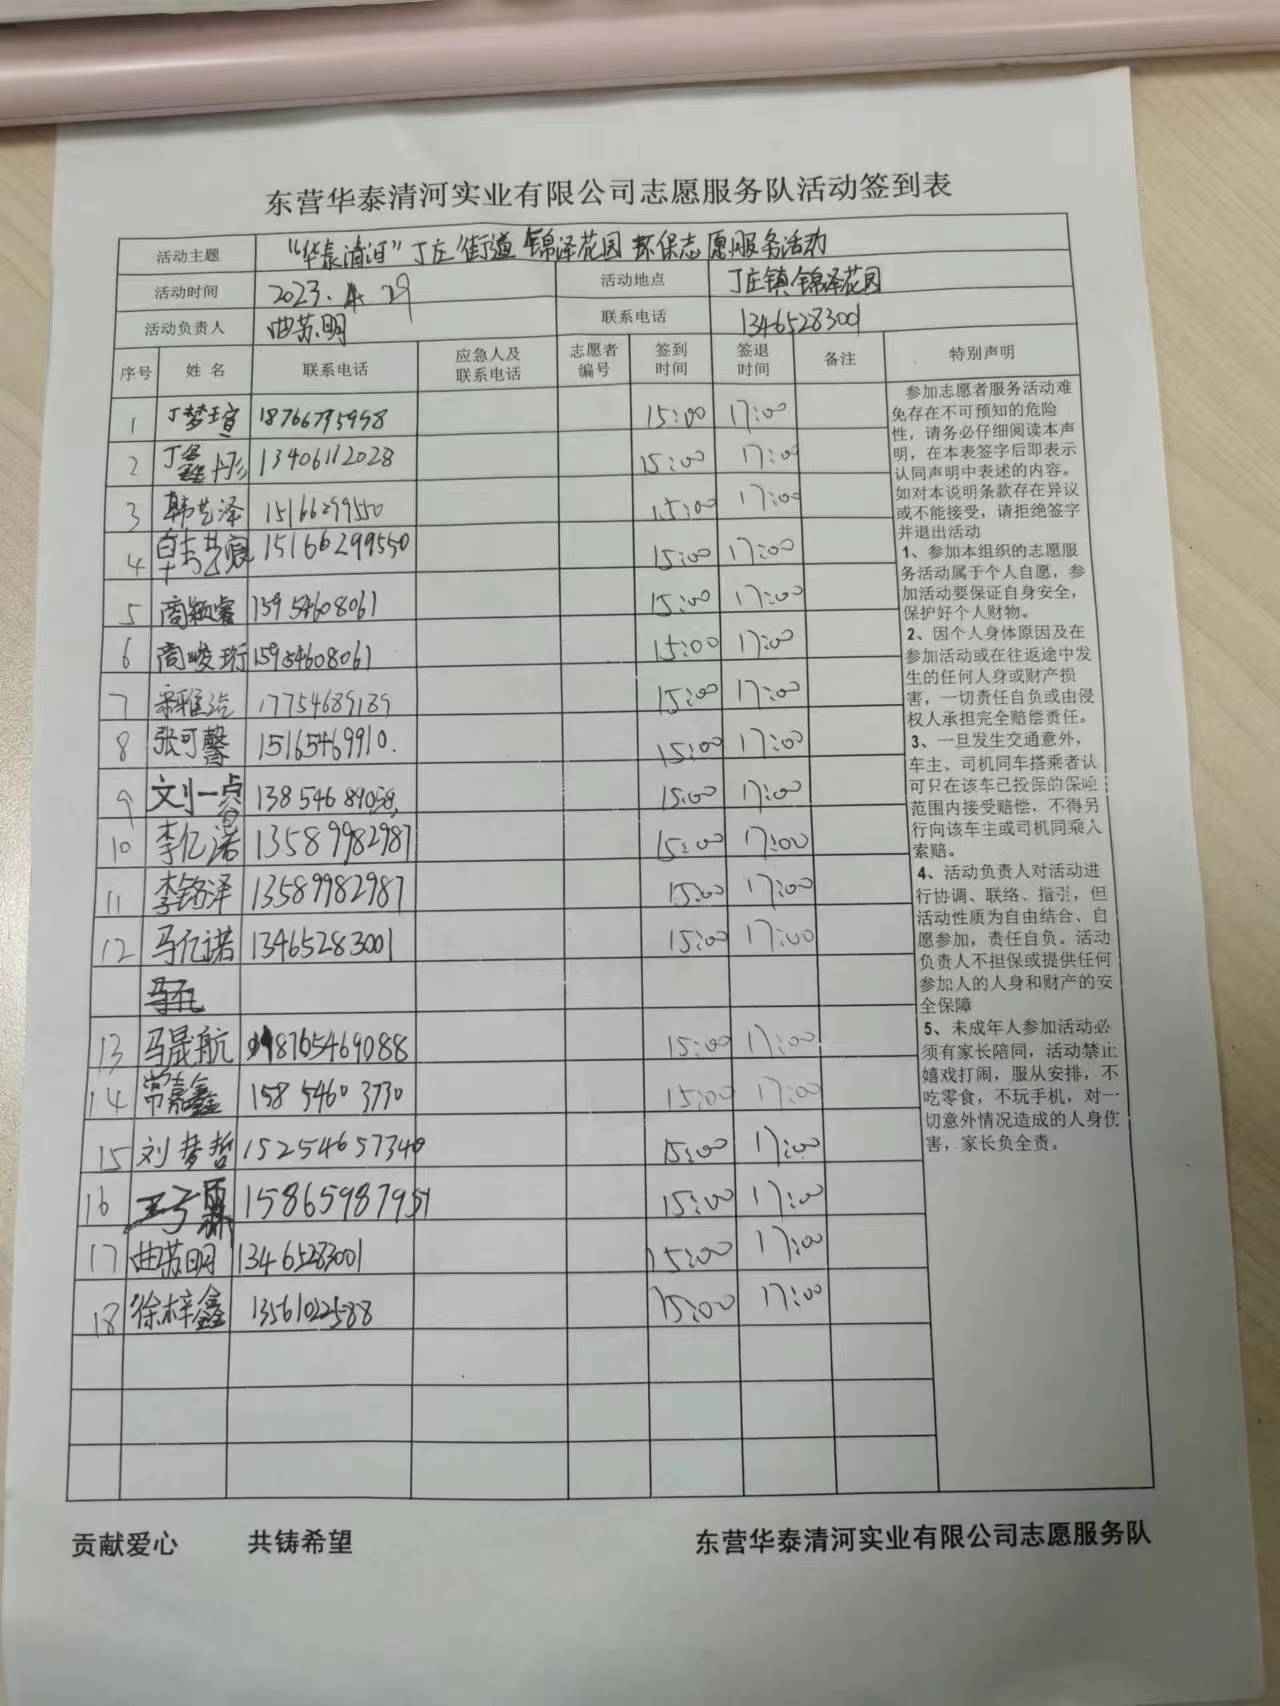 东营华泰清河实业有限公司志愿服务队活动签到表
活动主题 "华泰清河"丁庄街道锦泽花园环保志愿服务活动
活动时间 2023.4.29 活动地点 丁庄镇锦泽花园
活动负责人 曲苏明 联系电话 13465283001
序号 姓名 联系电话 应急人及联系电话 志愿者编号 签到时间 签退时间 备注 特别声明
1 丁梦瑄 18766795998 15:00 17:00
2 丁鑫彤 13406112028 15:00 17:00
3 韩艺泽 15166299550 15:00 17:00
4 韩艺宸 15166299550 15:00 17:00
5 商颖睿 15954608061 15:00 17:00
6 商峻珩 15954608061 15:00 17:00
7 17754689189 15:00 17:00
8 张可馨 15165469910. 15:00 17:00
9 刘一 13854689058 15:00 17:00
10 李亿诺 13589982987 15:00 17:00
11 李铭泽 13589982987 15:00 17:00
12 马亿诺 13465283001 15:00 17:00
13 马晟航 18765469088 15:00 17:00
14 常嘉鑫 158 5460 3730 15:00 17:00
15 刘梦哲 15254657340 15:00 17:00
16 王子霖 15865987951 15:00 17:00
17 曲苏明 13465283001 15:00 17:00
18 徐梓鑫 13561022588 15:00 17:00
参加志愿者服务活动难
免存在不可预知的危险
性，请务必仔细阅读本声
明，在本表签字后即表示
认同声明中表述的内容。
如对本说明条款存在异议
或不能接受，请拒绝签字
并退出活动
1、参加本组织的志愿服
务活动属于个人自愿，参
加活动要保证自身安全，
保护好个人财物。
2、因个人身体原因及在
参加活动或在往返途中发
生的任何人身或财产损
害，一切责任自负或由侵
权人承担完全赔偿责任。
3、一旦发生交通意外，
车主、司机同车搭乘者认
可只在该车已投保的保险
范围内接受赔偿，不得另
行向该车主或司机同乘人
索赔。
4、活动负责人对活动进
行协调、联络、指引，但
活动性质为自由结合、自
愿参加，责任自负。活动
负责人不担保或提供任何
参加人的人身和财产的安
全保障
5、未成年人参加活动必
须有家长陪同，活动禁止
嬉戏打闹，服从安排，不
吃零食，不玩手机，对一
切意外情况造成的人身伤
害，家长负全责。
贡献爱心 共铸希望 东营华泰清河实业有限公司志愿服务队